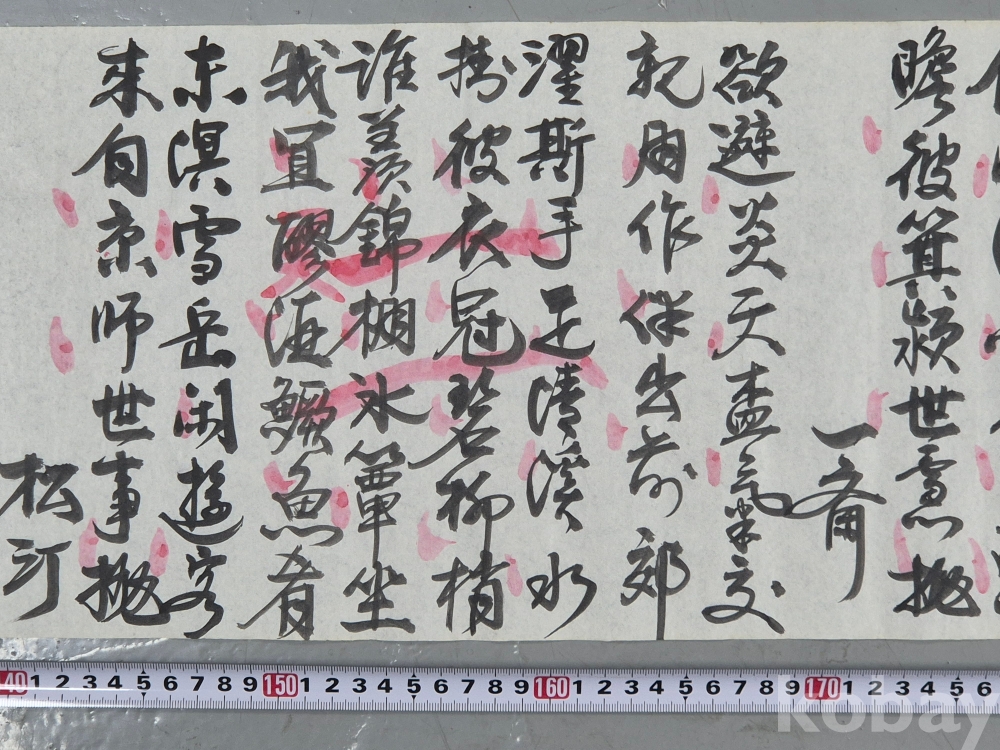 瞻彼箕潁世慮拋
一斎
欲避炎天氣交
親朋作伴出前郊
濯斯手足清溪水
掛彼衣冠碧柳梢
誰羨錦棚氷簟坐
我宜醪酒鱖魚肴
東溟雪岳閑遊客
来自京師世事拋
松汀
40 1 2 3 4 5 6 7 8 9 150 1 2 3 4 5 6 7 8 9 160 1 2 3 4 5 6 7 8 9 170 1 2 3 4 5 6
kobay